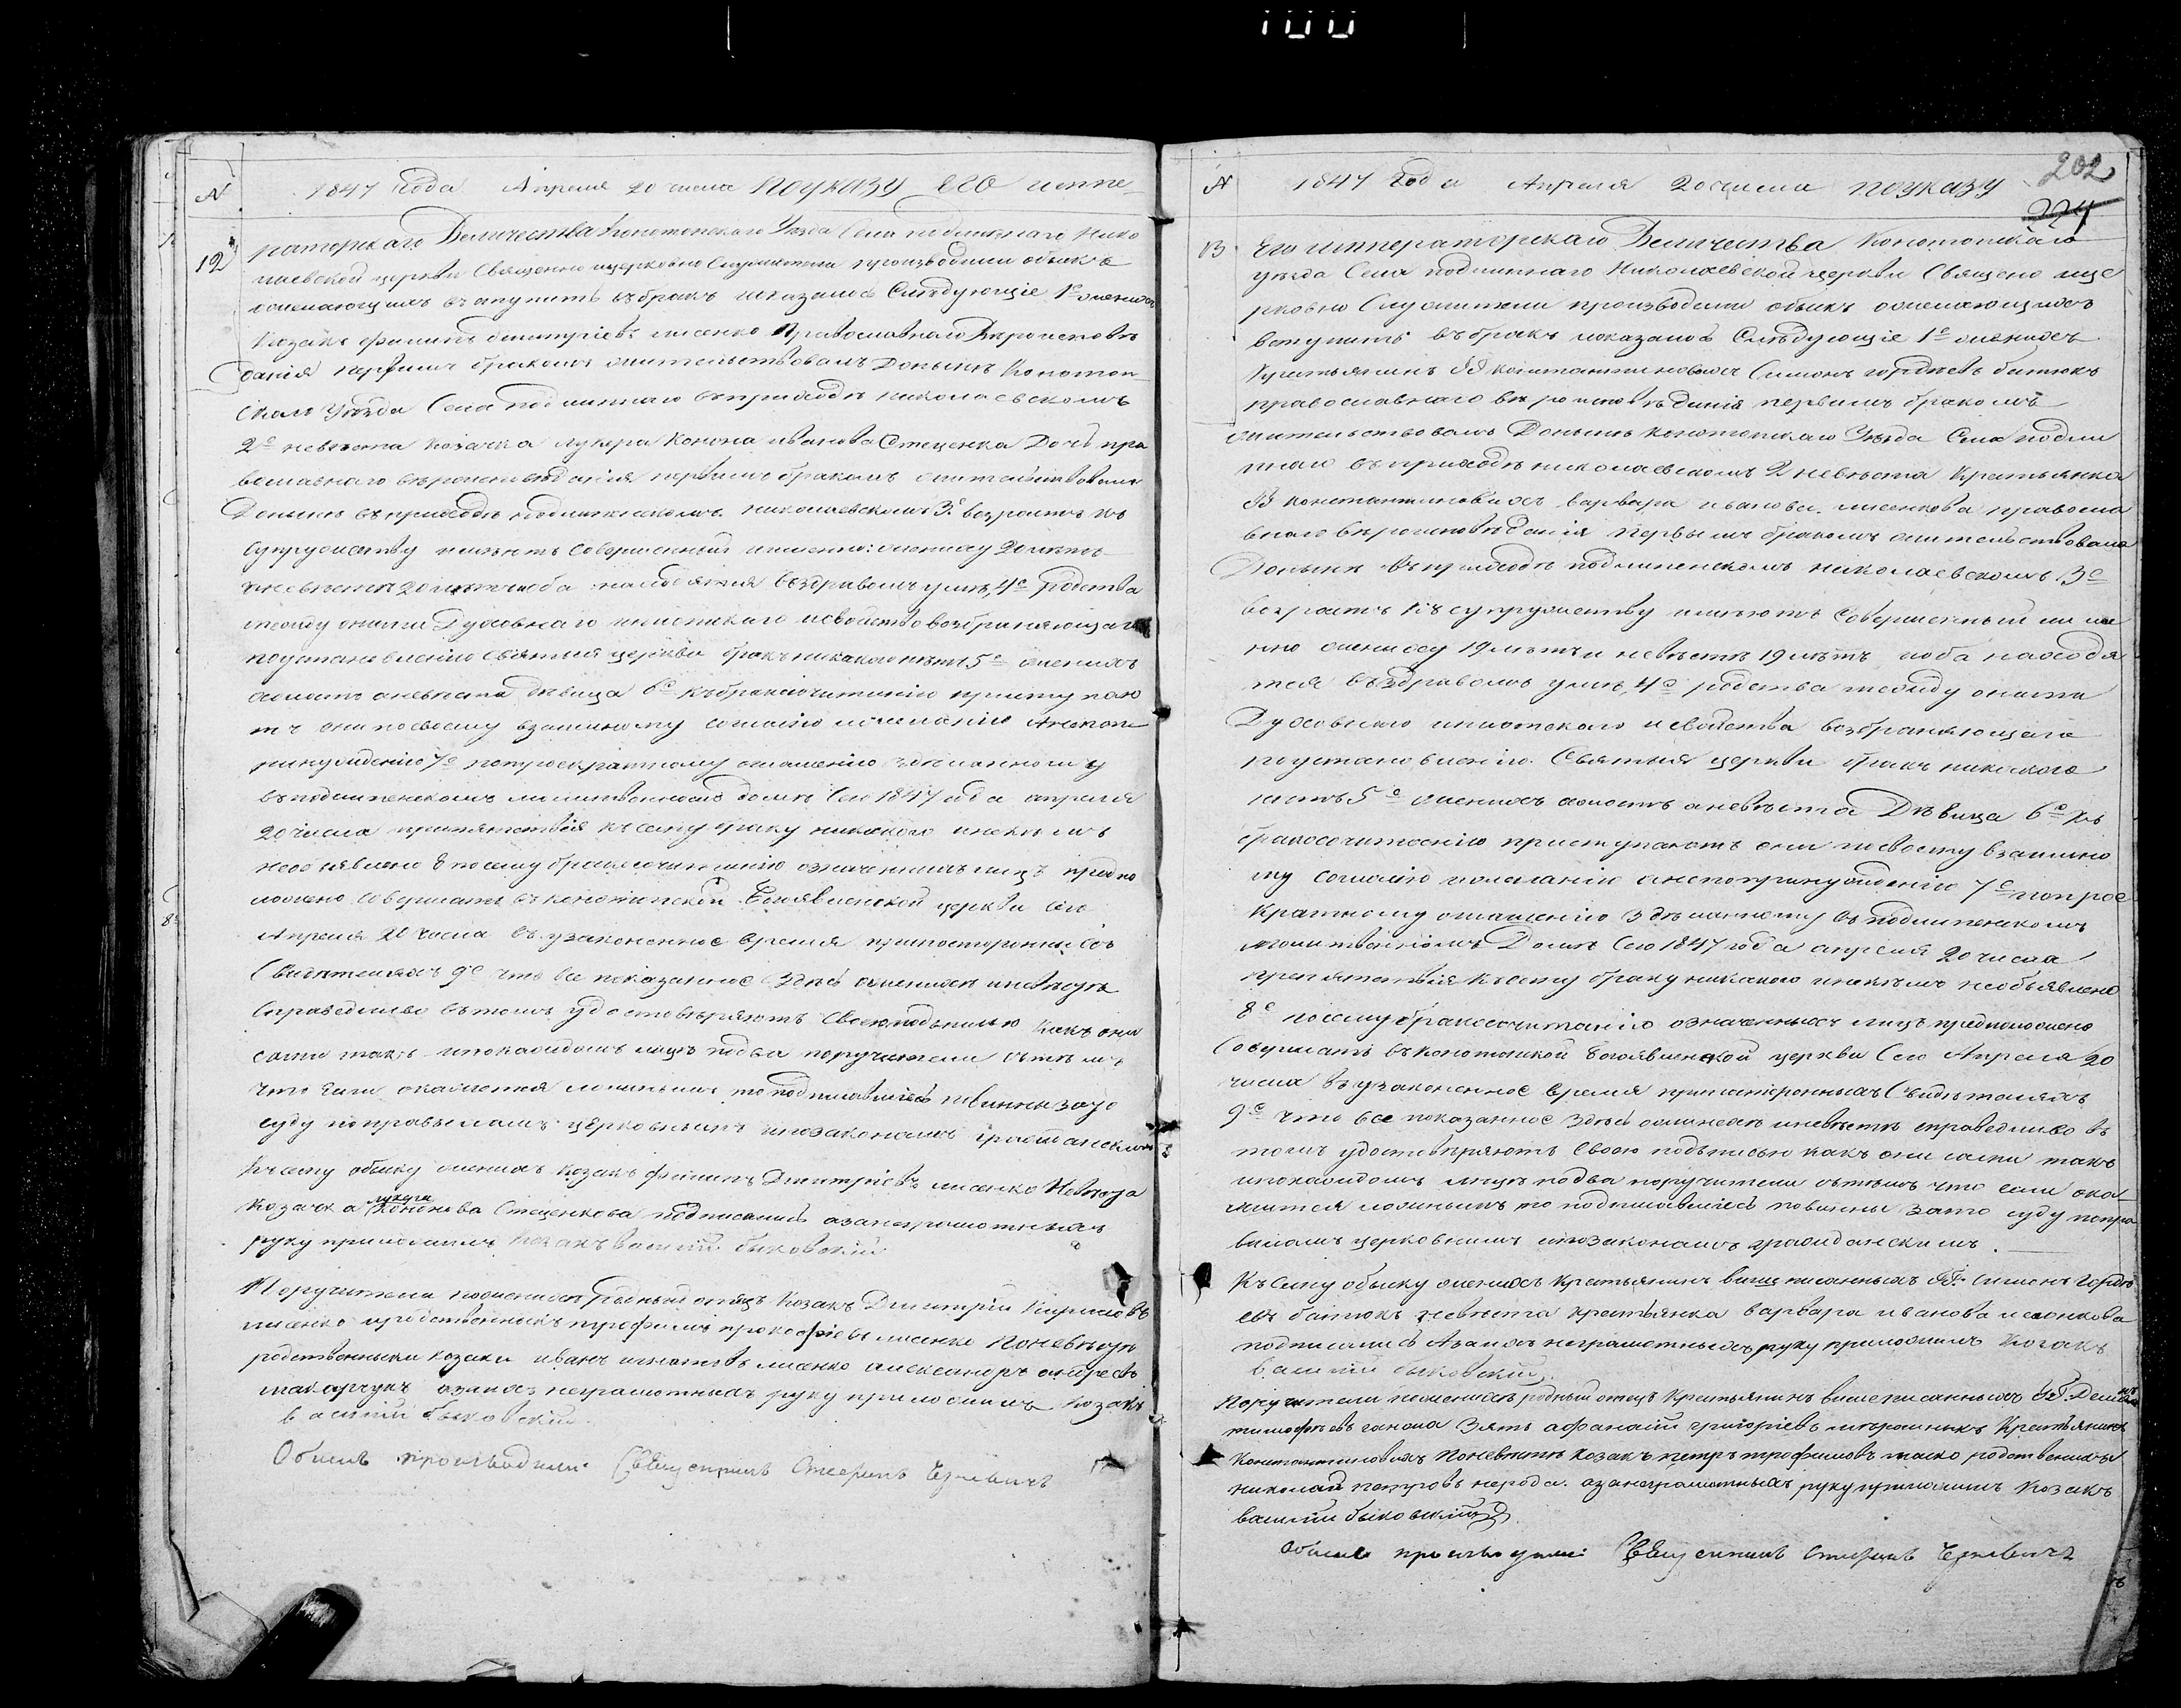 100
№ 1847 года Апреля 20 числа По указу его импе-
12 раторскаго Величества Конотопскаго Уезда Села подлипнаго Нико
лаевской церкви Священно ицерковно Служители производили обыскъ
ожелающихъ вступить въбракъ иоказалось Слѣдующіе 1е женихъ
Козакъ филипъ димитріевъ лисенко Православнаго Вѣроисповѣ
данія первымъ бракомъ жительствовалъ Доныне Конотоп
скаго Уезда Села подлипнаго въприходѣ николаевскомъ
2е невѣста козачка лукера Конона иванова Стеценка Дочь пра
вославнаго вѣроисповѣданія первымъ бракомъ жительствовала
Доныне въприходѣ подлипенскомъ николаевскомъ 3е возрастъ къ
супружеству имѣютъ совершенный именно: жениху 20 лѣтъ
иневѣсте 20 лѣтъ иоба находятся въздравомъ умѣ, 4е родства
между оними Духовнаго иплотскаго исвойства возбраняющаго
поустановленію святыя церкви бракъ никакого нѣтъ 5е женихъ
холостъ аневѣста дѣвица 6е къбракосочитанію приступаю
тъ они посвоему взаимному согласію ижеланію Анепопо
ринужденію 7е потроекратному оглашенію здѣланному
въподлипенскомъ молитвенномъ домѣ Сего 1847 года апреля
20 числа препятствія къ сему браку никакого инекѣмъ
необъявлено 8 посему бракосочитанію означенныхъ лицъ предпо
ложено Совершать въконотопской Богоявленской церкви Сего
Апреля 20 числа въ узаконенное время припостороннихъ
Свидѣтеляхъ 9е что все показанное Здѣсь оженихе иневѣсте
справедливо вътомъ удостовѣряютъ Своею подписью какъ они
сами такъ ипокаждомъ лицѣ подва поручители стѣмъ
что Если окажется ложнымъ то подписавшіесь повинны зато
суду поправиламъ церковнымъ ипозаконамъ гражданскимъ
Къ сему обыску женихъ козакъ филипъ Димитріевъ лисенко Невѣста
Козачка лукера Кононова Стеценкова подписались азанеграмотныхъ
руку приложилъ козакъ василій быковский
Поручители поженихе родный отецъ Козакъ Димитрій Кириловъ
лисенко иродственникъ трофимъ прокофіевъ лисенко Поневѣсте
родственники козаки иванъ игнатовъ лисенко александръ андреевъ
макарчукъ азаних неграмотныхъ руку приложилъ козакъ
василій быковский
Обыскъ производили: Священникъ Стефанъ
202
№ 1847 года Апреля 20 числа По указу
224
13 Его императорскаго Величества Конотопскаго
уезда Села подлипнаго Николаевской церкви Священно ице
рковно Служители производили обыскъ ожелающихъ
вступить въбракъ иоказалось Слѣдующіе 1е женихъ
Крестьянинъ ГГ константиновыхъ Симонъ гордѣевъ батюкъ
православнаго вѣроисповѣданія первымъ бракомъ
жительствовалъ Доныне конотопскаго Уезда Села подли
пнаго въприходѣ николаевскомъ 2 невѣста Крестьянка
ГГ константиновыхъ варвара иванова лисенкова правосла
внаго вѣроисповѣданія Первымъ бракомъ жительствовала
Доныне въприходѣ подлипенскомъ николаевскомъ 3е
возрастъ Къ супружеству имѣютъ Совершенный име
нно жениху 19 лѣтъ и невѣсте 19 лѣтъ иоба находя
тся въздравомъ умѣ, 4е родства между оними
Духовнаго иплотскаго исвойства возбраняющаго
поустановленію Святыя церкви бракъ никакого
нетъ 5е женихъ холостъ аневѣста Дѣвица 6е къ
бракосочитанію приступаютъ они посвоему взаимно
му согласію ижеланію анепопринужденію 7е потрое
кратному оглашенію Здѣланному въ подлипенскомъ
молитвенномъ Домѣ Сего 1847 года апреля 20 числа
препятствія Ксему браку никакого инекѣмъ необъявлено
8е посему бракосочитанію означенныхъ лицъ предположено
Совершать въконотопской Богоявленской церкви Сего Апреля 20
числа въузаконенное время припостороннихъ Свидѣтеляхъ
9е что все показанное здѣсь оженихе иневѣсте справедливо въ
томъ удостовѣряютъ Своею подписью какъ они сами такъ
ипокаждомъ лицѣ подва поручители стѣмъ что если ока
жится ложнымъ то подписавшіесь повинны зато суду попра
виламъ церковнымъ ипозаконамъ гражданскимъ.
Къ Сему обыску женихъ Крестьянинъ вышеписанныхъ ГГ. Симонъ Гордѣ
евъ батюкъ невѣста крестьянка варвара иванова лисенкова
подписались Азаних неграмотныхъ руку приложилъ Козакъ
василій быковский
Поручители поженихе родный отецъ Крестьянинъ вышеписанныхъ ГГ.
тимофѣевъ Зять афанасій григоріевъ Крестьянинъ
Константиновыхъ Поневѣсте Козакъ петръ трофимовъ родственникъ
николай петровъ азанеграмотныхъ руку приложилъ Козакъ
василій быковский
Обыскъ производили: Священникъ Стефанъ